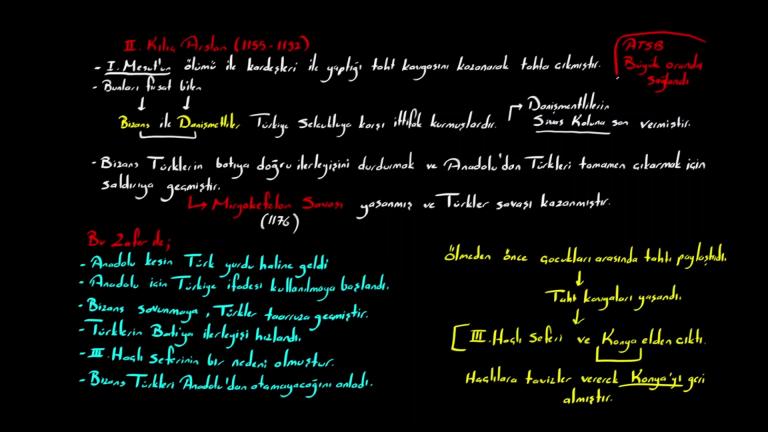 II. Kılıç Arslan (1155-1192)
- I. Mesut'un ölümü ile kardeşleri ile yaptığı taht kavgasını kazanarak tahta çıkmıştır.
ATSB
Büyük oranda
sağlandı
- Bunları fırsat bilen
Bizans ile Danişmetliler Türkiye Selçukluya karşı ittifak kurmuşlardır.
Danişmentlilerin
Sivas Koluna son vermiştir.
- Bizans Türklerin batıya doğru ilerleyişini durdurmak ve Anadolu'dan Türkleri tamamen çıkarmak için
saldırıya geçmiştir.
Miryakefelon Savaşı yaşanmış ve Türkler savaşı kazanmıştır.
(1176)
Bu Zafer de;
- Anadolu kesin Türk yurdu haline geldi
- Anadolu için Türkiye ifadesi kullanılmaya başlandı.
- Bizans savunmaya, Türkler taarruza geçmiştir.
- Türklerin Batı'ya ilerleyişi hızlandı.
- III. Haçlı Seferinin bir nedeni olmuştur.
- Bizans Türkleri Anadolu'dan atamayacağını anladı.
Ölmeden önce çocukları arasında tahtı paylaştırdı.
Taht kavgaları yaşandı.
III. Haçlı Seferi ve Konya elden çıktı.
Haçlılara tavizler vererek Konya'yı geri
almıştır.